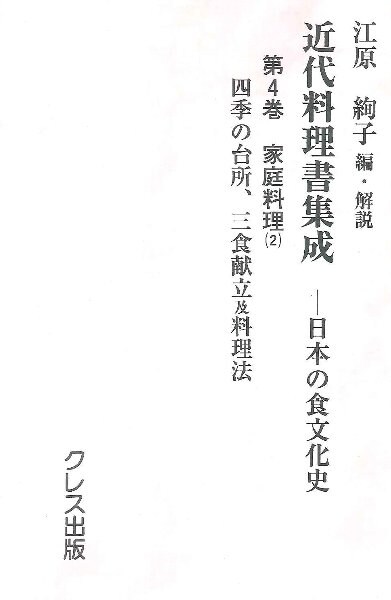 江原 絢子 編・解説
近代料理書集成 ―日本の食文化史
第4巻 家庭料理(2)
四季の台所、三食献立及料理法
クレス出版